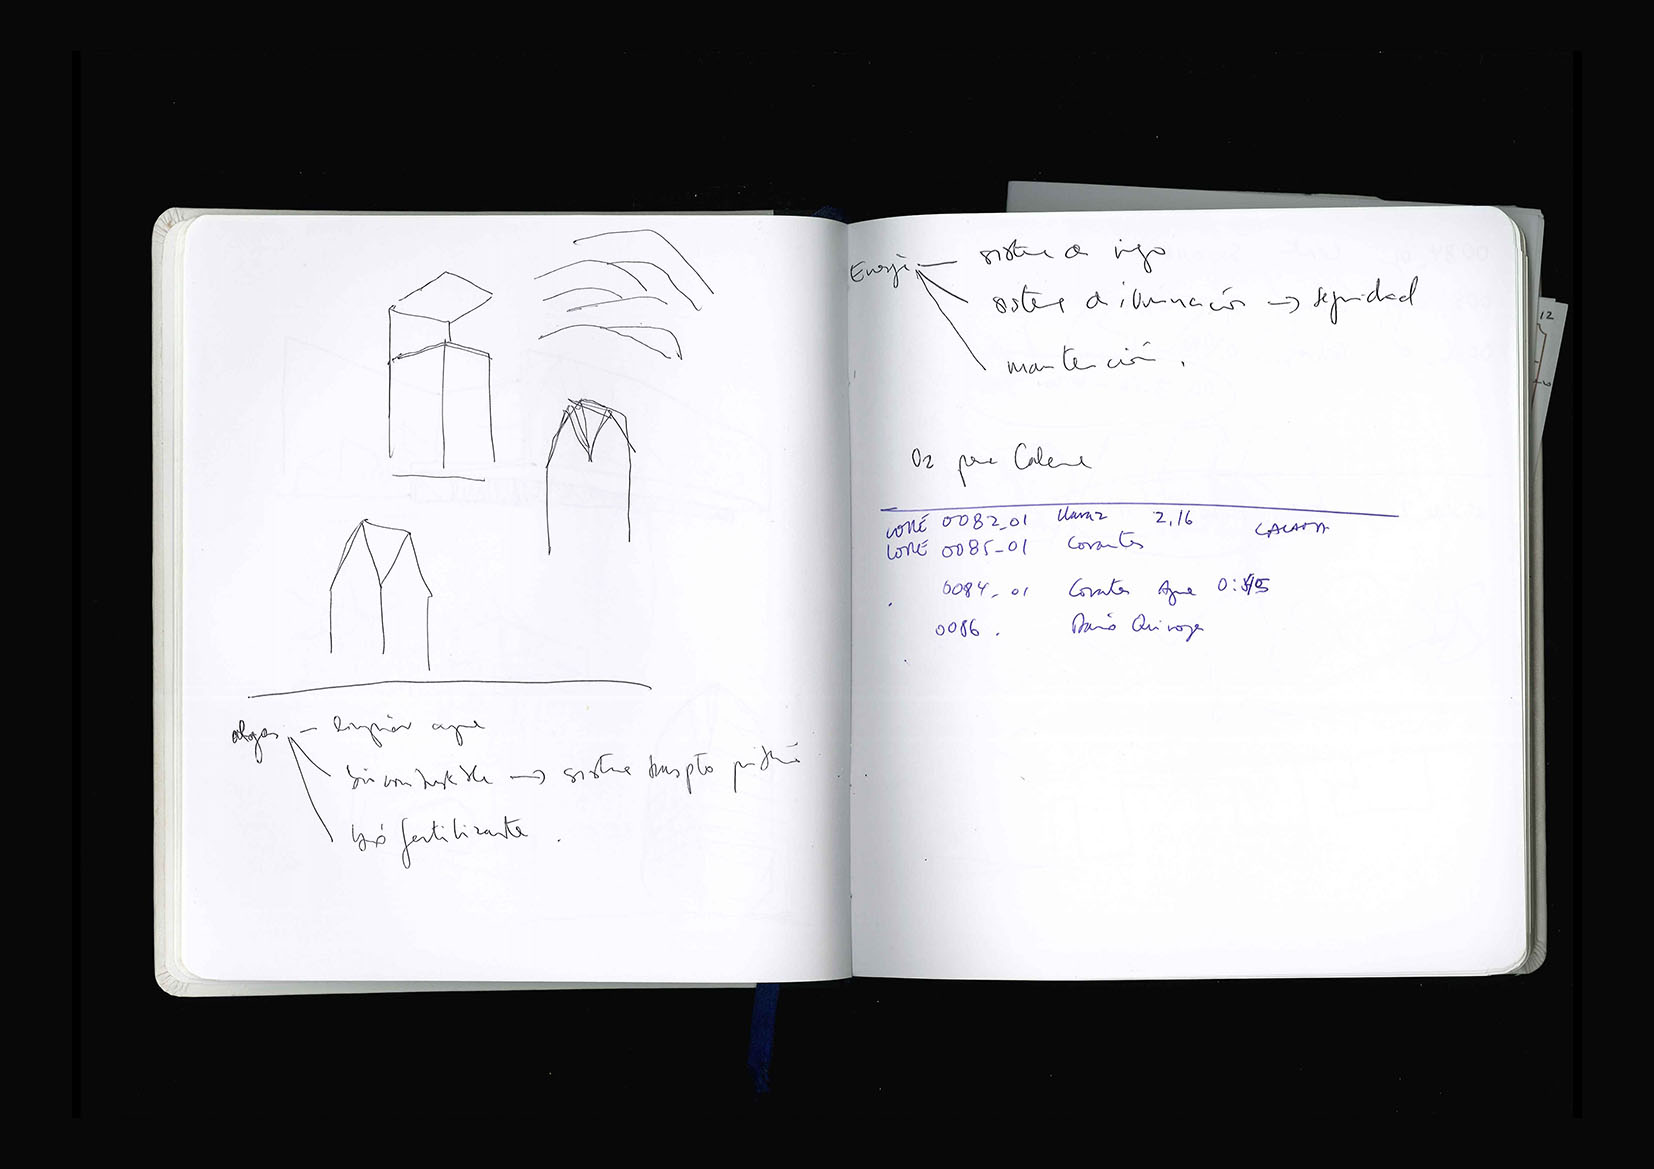 algas — limpiar agua
biocombustible → sistema público
bio fertilizante.
Energí — sistema de riego
sistema de iluminación → seguridad
mantención.
O2 para Calama
LORÉ 0082_01 2,16 CALAMA
LORÉ 0085-01 Corantes
0084_01 Corantes Agua
0086. Darío Quiroga
12